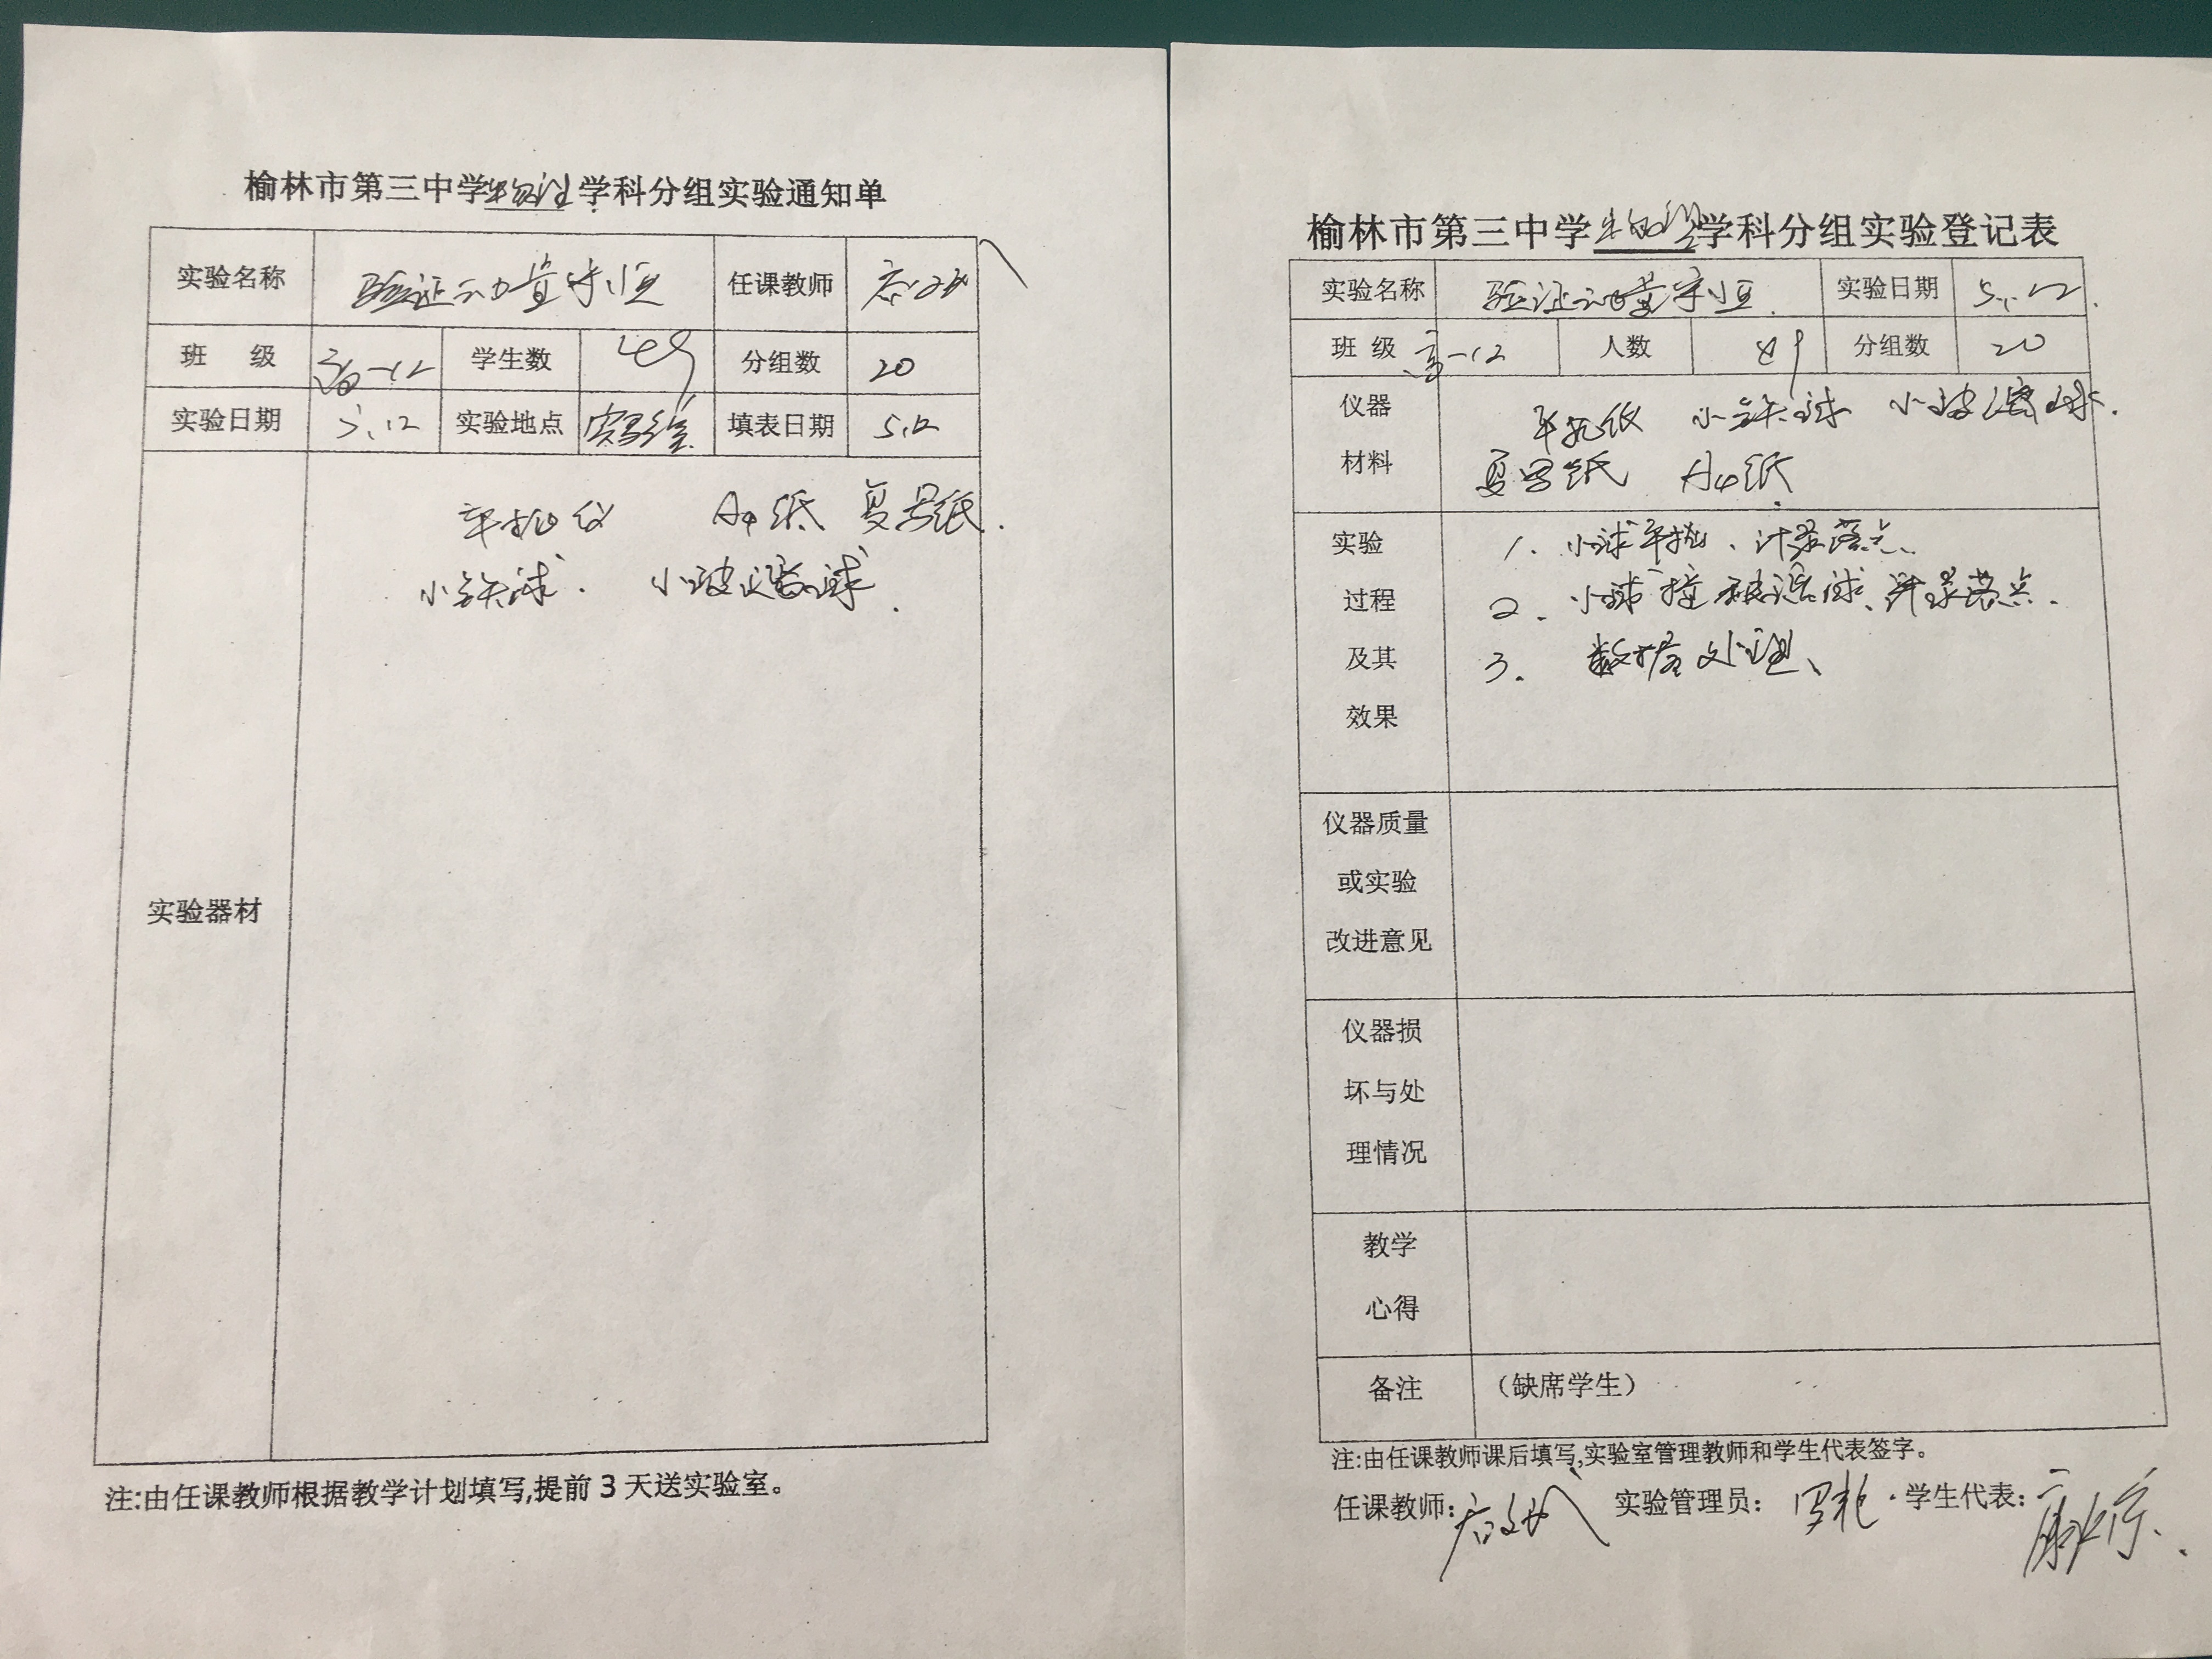 榆林市第三中学物理学科分组实验通知单
实验名称 验证动量守恒 任课教师
班 级 高一12 学生数 49 分组数 20
实验日期 5.12 实验地点 实验室 填表日期 5.12
实验器材
平抛仪 A4纸 复写纸.
小铁球. 小玻璃球.
注:由任课教师根据教学计划填写,提前3天送实验室。
榆林市第三中学物理学科分组实验登记表
实验名称 验证动量守恒. 实验日期 5.12.
班 级 高一12 人数 49 分组数 20
仪器 平抛仪 小铁球 小玻璃球.
材料 复写纸 A4纸
实验 1. 小球平抛、记录落点、
过程 2. 小球撞玻璃球、记录落点.
及其 3. 数据处理、
效果
仪器质量
或实验
改进意见
仪器损
坏与处
理情况
教学
心得
备注 （缺席学生）
注:由任课教师课后填写,实验室管理教师和学生代表签字。
任课教师: 实验管理员: 学生代表: